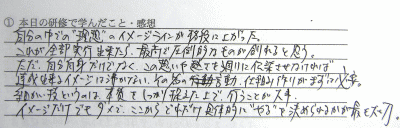 ① 本日の研修で学んだこと・感想
自分の中での"理想"のイメージラインが格段に上がった。
これが全部実行出来たら、最高で圧倒的なものが創れると思う。
ただ、自分自身だけでなく、この思いや越てを周りに伝染させなければ
達成出来るイメージは沸かない。その為の行動、言動、仕組み作りがまずは必要。
細かい技というのは、本質をしっかり捉えた上で行うことが大事。
イメージだけでもダメで、ここからどれだけ具体的に"やる"を決められるかが最も大切。